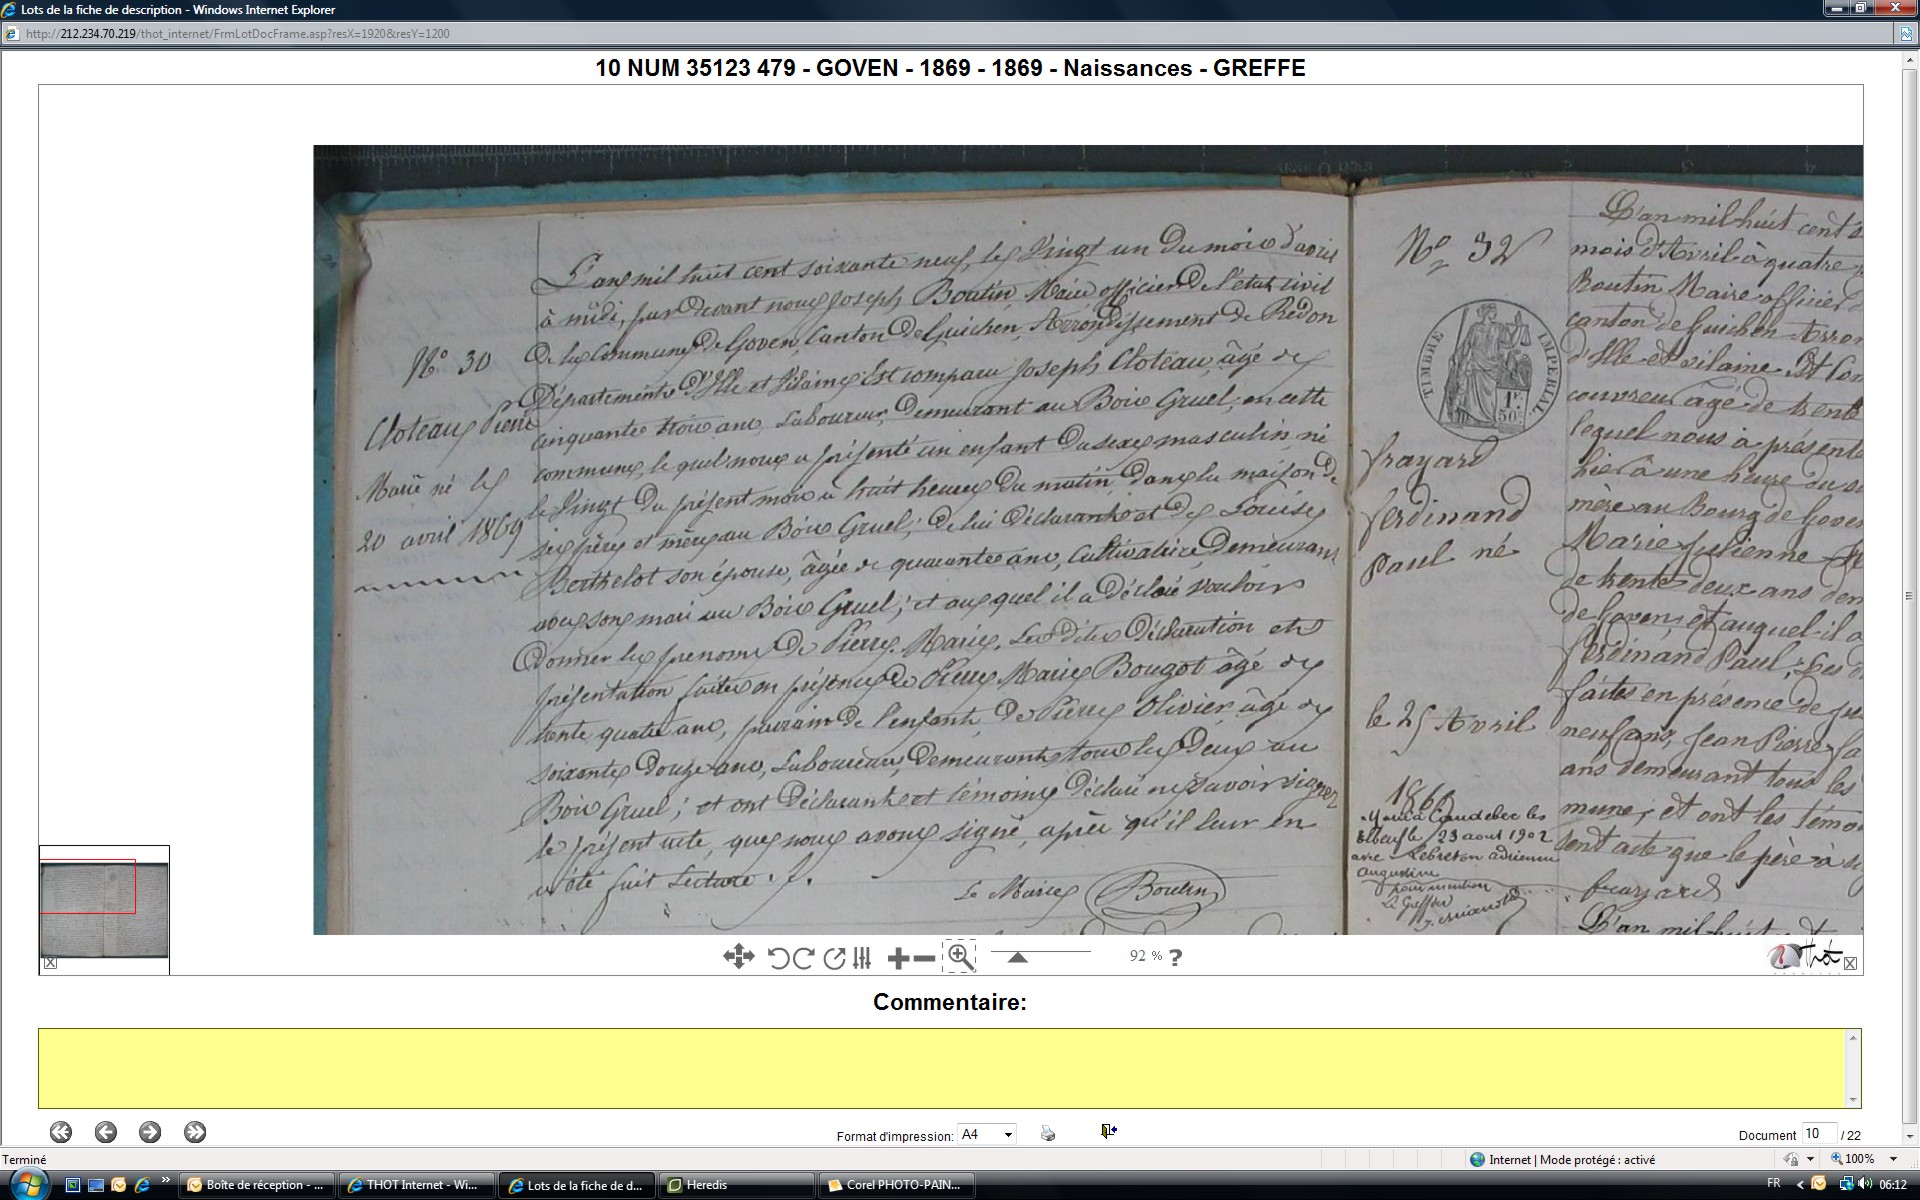 Lots de la fiche de description - Windows Internet Explorer
http://212.234.70.219/thot_internet/FrmLotDocFrame.asp?resX=1920&resY=1200
10 NUM 35123 479 - GOVEN - 1869 - 1869 - Naissances - GREFFE
N° 30
Cloteau Pierre
Marie né le
20 avril 1869
L'an mil huit cent soixante neuf, le vingt un du mois d'avril
à midi, par devant nous Joseph Boutin, Maire officier de l'état civil
de la Commune de Goven, Canton de Guichen, Arrondissement de Redon
Département d'Ille et Vilaine Est comparu Joseph Cloteau, âgé de
cinquante trois ans, Laboureur, demeurant au Bois Gruel, en cette
commune, le quel nous a présenté un enfant du sexe masculin né
le vingt du présent mois à huit heures du matin, dans la maison de
ses père et mère au Bois Gruel; de lui déclarant et de Louise
Berthelot son épouse, âgée de quarante ans, Cultivatrice, demeurant
avec son mari au Bois Gruel; et au quel il a déclaré vouloir
donner les prénoms de Pierre Marie. Les dites déclaration et
présentation faites en présence de Pierre Marie Bougot âgé de
trente quatre ans, parrain de l'enfant, de Pierre Olivier, âgé de
soixante douze ans, Laboureurs, demeurant tous les deux au
Bois Gruel; et ont déclarant et témoins déclaré ne savoir signer
le présent acte, que nous avons signé, après qu'il leur en
a été fait Lecture.
Le Maire Boutin
N° 32
TIMBRE IMPERIAL
1F.
50c.
frayard
ferdinand
Paul né
le 25 Avril
1869
Caudebec les
Elbeuf le 23 aout 1902
avec Lebreton adrienne
augustine
pour mention
Le Greffier
L'an mil huit cent
mois d'Avril à quatre
Boutin Maire officier
canton de Guichen Arron
d'Ille et vilaine. Est Com
couvreur âgé de trente
lequel nous a présenté
hier à une heure du
mère au Bourg de Goven
Marie Julienne
de trente deux ans dem
de Goven; et auquel il a
ferdinand Paul; Les
faites en présence de
neuf ans, Jean Pierre
ans demeurant tous les
mune; et ont les témo
sent acte que le père a
frayard
L'an mil huit
92 % ?
Thot
Commentaire:
Format d'impression: A4
Document 10 / 22
Terminé
Internet | Mode protégé : activé
100%
Boîte de réception - ...
THOT Internet - Wi...
Lots de la fiche de d...
Heredis
Corel PHOTO-PAIN...
FR
06:12